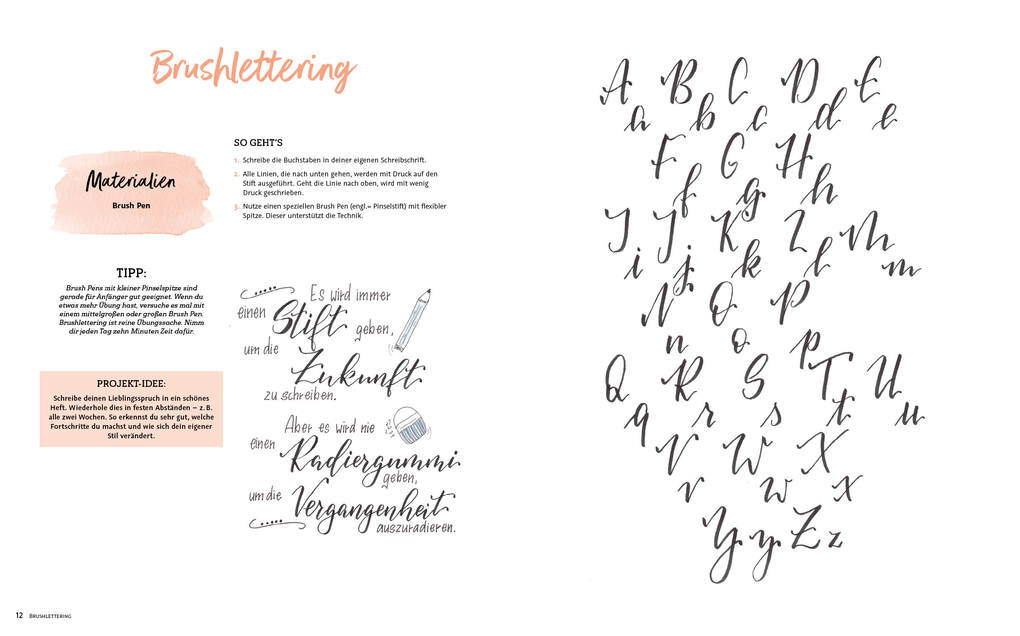 Brushlettering
Materialien
Brush Pen
SO GEHT'S
1. Schreibe die Buchstaben in deiner eigenen Schreibschrift.
2. Alle Linien, die nach unten gehen, werden mit Druck auf den
Stift ausgeführt. Geht die Linie nach oben, wird mit wenig
Druck geschrieben.
3. Nutze einen speziellen Brush Pen (engl.= Pinselstift) mit flexibler
Spitze. Dieser unterstützt die Technik.
TIPP:
Brush Pens mit kleiner Pinselspitze sind
gerade für Anfänger gut geeignet. Wenn du
etwas mehr Übung hast, versuche es mal mit
einem mittelgroßen oder großen Brush Pen.
Brushlettering ist reine Übungssache. Nimm
dir jeden Tag zehn Minuten Zeit dafür.
PROJEKT-IDEE:
Schreibe deinen Lieblingsspruch in ein schönes
Heft. Wiederhole dies in festen Abständen – z. B.
alle zwei Wochen. So erkennst du sehr gut, welche
Fortschritte du machst und wie sich dein eigener
Stil verändert.
Es wird immer
einen Stift geben,
um die
Zukunft
zu schreiben.
Aber es wird nie
einen
Radiergummi
geben,
um die
Vergangenheit
auszuradieren.
12 BRUSHLETTERING
A B C D E
a b c d e
F G H
f g h
I J K L M
i j k l m
N O P
n o p
Q R S T U
q r s t u
V W X
v w x
Y y Z z